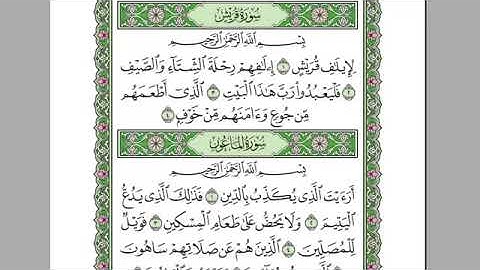 سُورَةُ قُرَيْشٍ
بِسْمِ ٱللَّهِ ٱلرَّحْمَٰنِ ٱلرَّحِيمِ
لِإِيلَٰفِ قُرَيْشٍ ١ إِۦلَٰفِهِمْ رِحْلَةَ ٱلشِّتَآءِ وَٱلصَّيْفِ
٢ فَلْيَعْبُدُوا۟ رَبَّ هَٰذَا ٱلْبَيْتِ ٣ ٱلَّذِىٓ أَطْعَمَهُم
مِّن جُوعٍ وَءَامَنَهُم مِّنْ خَوْفٍۭ ٤
سُورَةُ المَاعُونِ
بِسْمِ ٱللَّهِ ٱلرَّحْمَٰنِ ٱلرَّحِيمِ
أَرَءَيْتَ ٱلَّذِى يُكَذِّبُ بِٱلدِّينِ ١ فَذَٰلِكَ ٱلَّذِى يَدُعُّ
ٱلْيَتِيمَ ٢ وَلَا يَحُضُّ عَلَىٰ طَعَامِ ٱلْمِسْكِينِ ٣ فَوَيْلٌ
لِّلْمُصَلِّينَ ٤ ٱلَّذِينَ هُمْ عَن صَلَاتِهِمْ سَاهُونَ